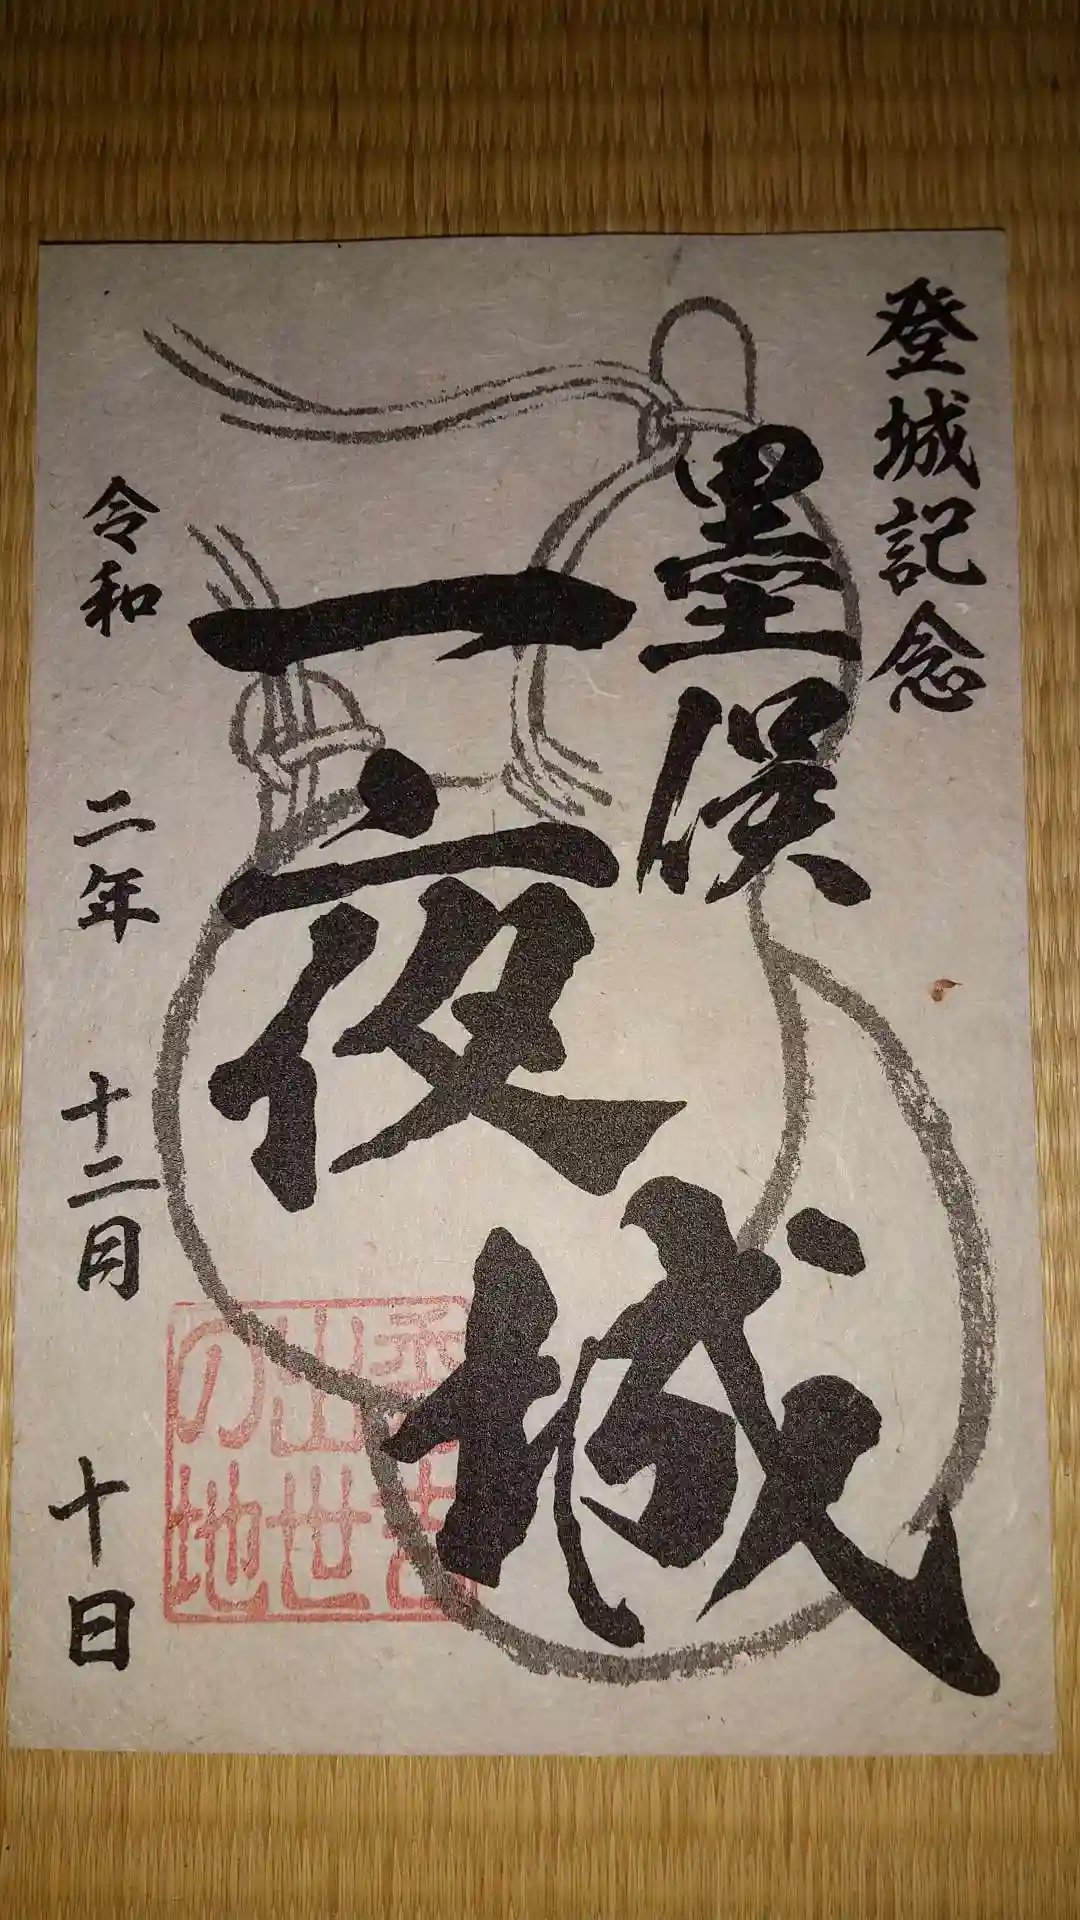 登城記念
墨俣
一夜城
令和 二年 十二月 十日
秀吉
出世
の地